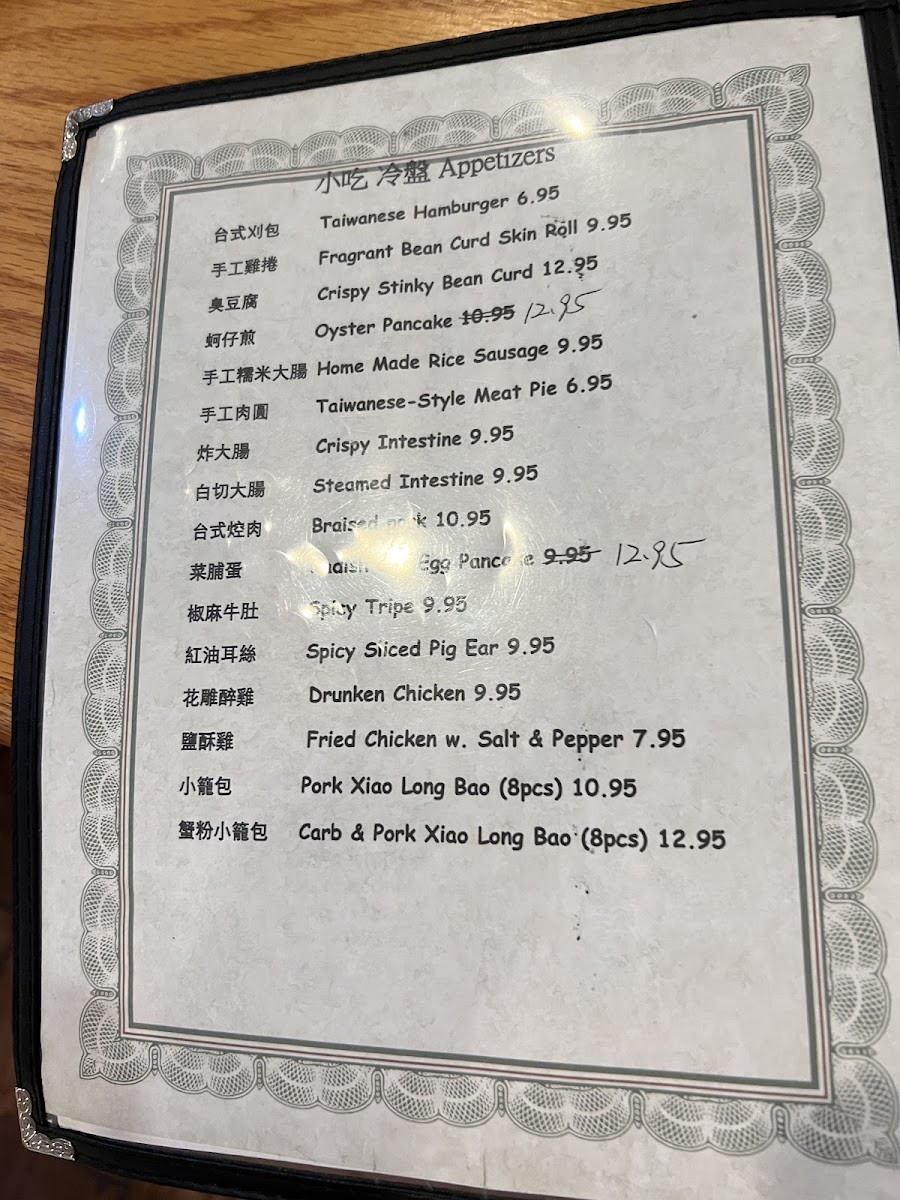 小吃 冷盤 Appetizers
台式刈包 Taiwanese Hamburger 6.95
手工雞捲 Fragrant Bean Curd Skin Roll 9.95
臭豆腐 Crispy Stinky Bean Curd 12.95
蚵仔煎 Oyster Pancake 10.95 12.95
手工糯米大腸 Home Made Rice Sausage 9.95
手工肉圓 Taiwanese-Style Meat Pie 6.95
炸大腸 Crispy Intestine 9.95
白切大腸 Steamed Intestine 9.95
台式焢肉 Braised pork 10.95
菜脯蛋 Egg Pancake 9.95 12.95
椒麻牛肚 Spicy Tripe 9.95
紅油耳絲 Spicy Sliced Pig Ear 9.95
花雕醉雞 Drunken Chicken 9.95
鹽酥雞 Fried Chicken w. Salt & Pepper 7.95
小籠包 Pork Xiao Long Bao (8pcs) 10.95
蟹粉小籠包 Carb & Pork Xiao Long Bao (8pcs) 12.95